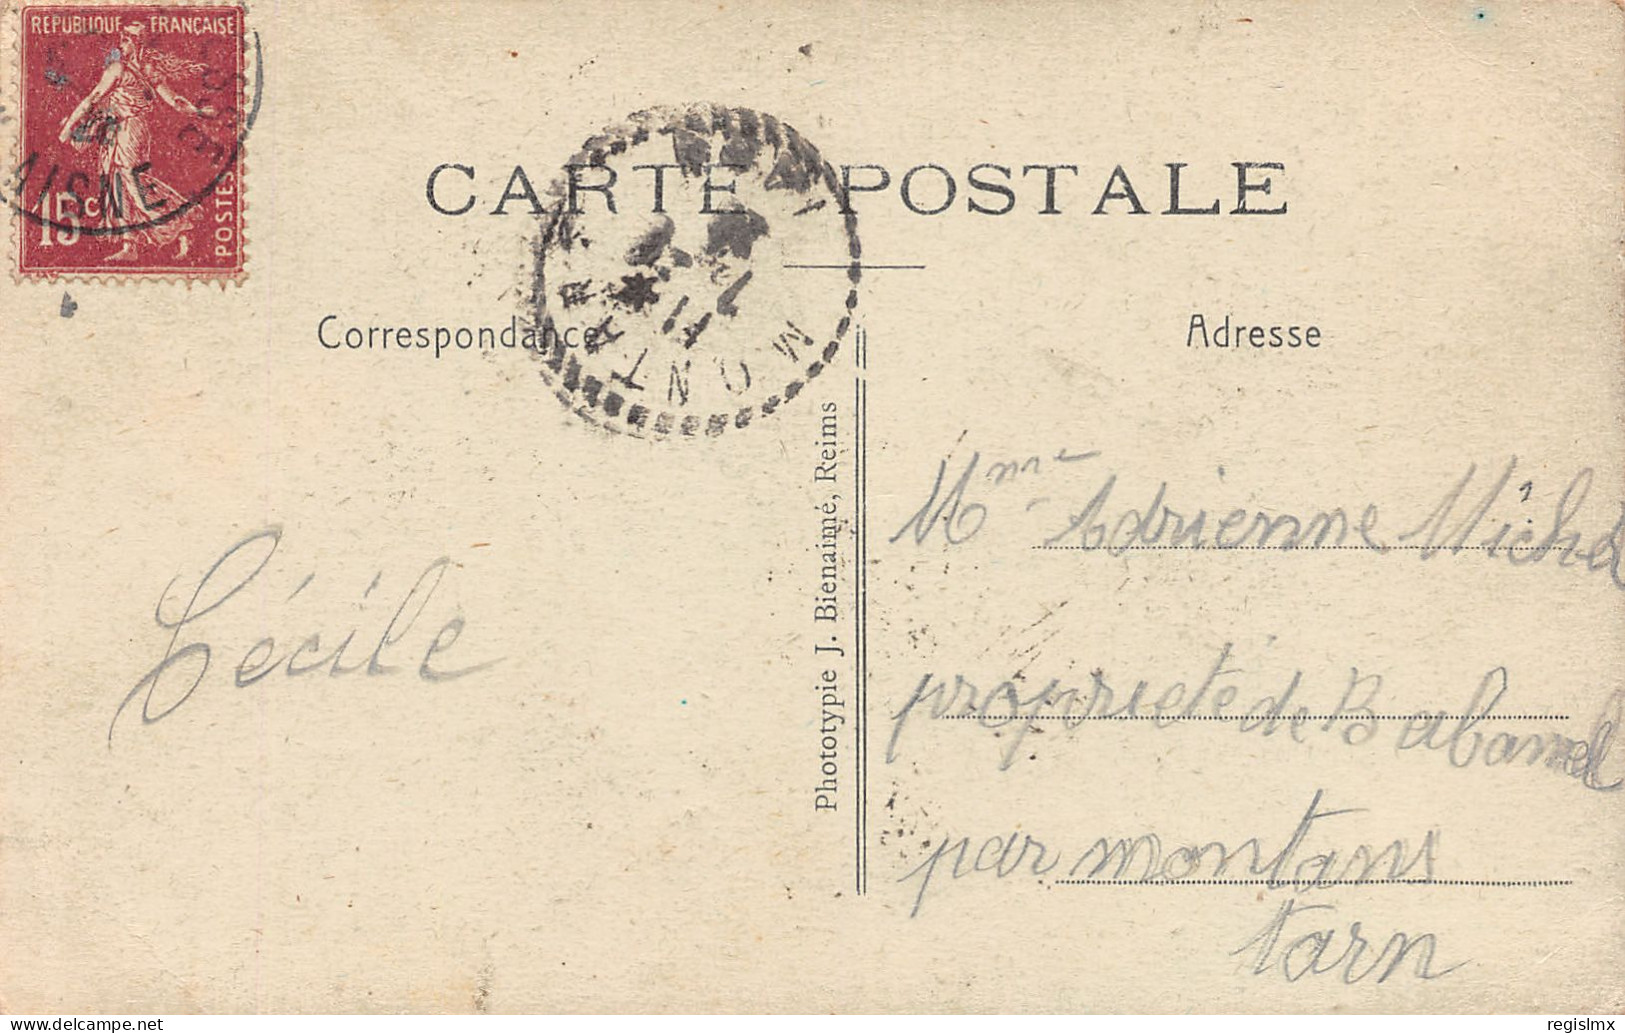 REPUBLIQUE FRANÇAISE
15c
POSTES
AISNE
CARTE POSTALE
Correspondance
Adresse
Phototypie J. Bienaimé, Reims
Cécile
Mme Adrienne Michel
proprieté de
par montans
tarn
regislmx